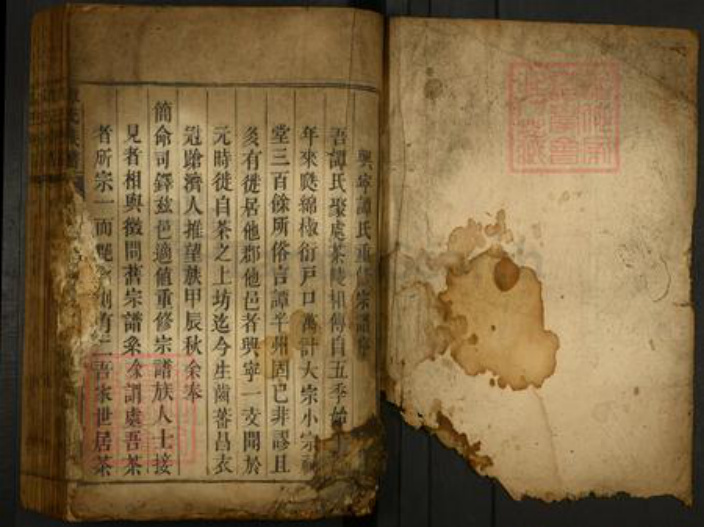 興寧譚氏重修宗譜序
吾譚氏聚處茶陵相傳自五季始
年來瓞綿椒衍戸口萬計大宗小宗祠
堂三百餘所俗言譚半州固已非謬且
㚇有徙居他郡他邑者興寧一支聞於
元時徙自茶之上坊迄今生齒蕃昌衣
冠蹌濟人推望族甲辰秋余奉
簡命司鐸玆邑適値重修宗譜族人士接
見者相與徵問舊宗譜僉余謂處吾茶
者所宗一而 有二吾家世居茶